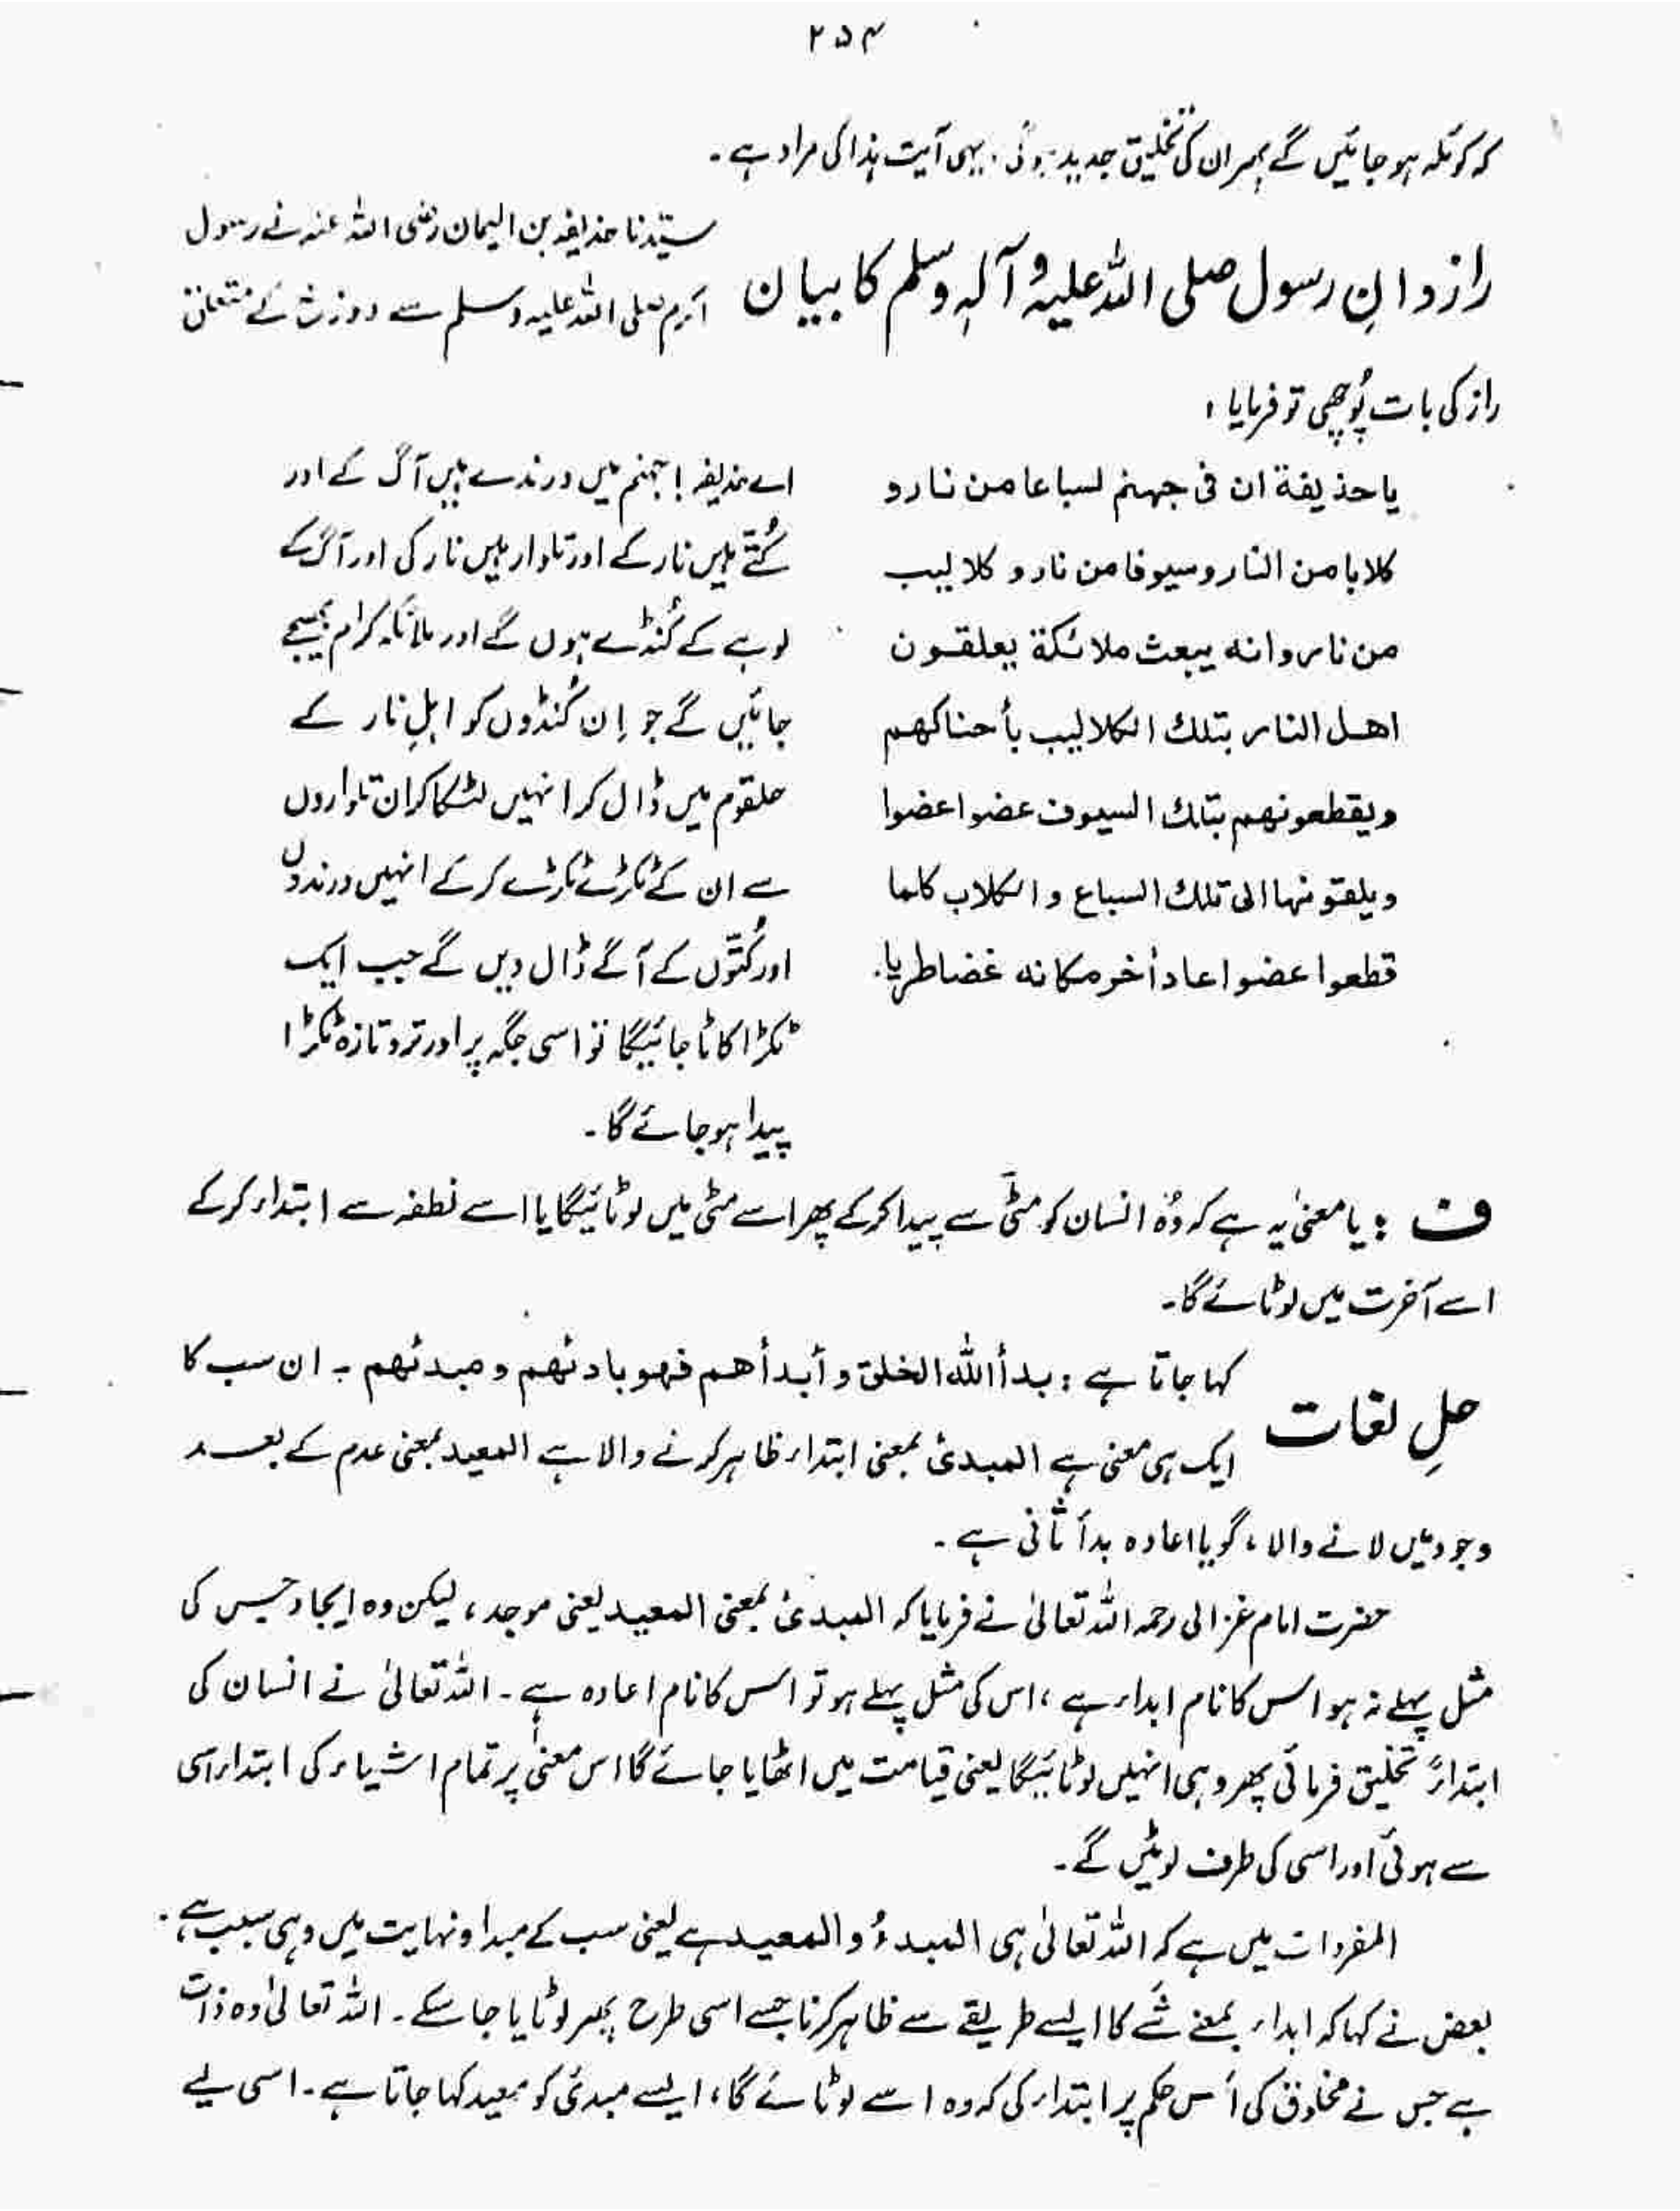 ۲۵۴
کہ کوئلہ ہو جائیں گے پھر ان کی تخلیق جدید ہوئی۔ یہی آیت ہذا کی مراد ہے۔
رازدانِ رسول صلی اللہ علیہ وآلہٖ وسلم کا بیان
سیّدنا حذیفہ بن الیمان رضی اللہ عنہ نے رسول
اکرم صلی اللہ علیہ وسلم سے دوزخ کے متعلق
راز کی بات پُوچھی تو فرمایا :
یا حذیفة ان فی جہنم لسباعا من نار و
کلابا من النار وسیوفا من نار و کلالیب
من نار وانه یبعث ملائکة یعلقون
اهل النار بتلك الکلالیب بأحناکهم
ویقطعونهم بتلك السیوف عضوا عضوا
ویلقونها الی تلك السباع و الکلاب کلما
قطعوا عضوا عاد أخر مکانه غضا طریا۔
اے حذیفہ! جہنم میں درندے ہیں آگ کے اور
کُتّے ہیں نار کے اور تلواریں ہیں نار کی اور آگ کے
لوہے کے کُنڈے ہوں گے اور ملائکہ کرام بھیجے
جائیں گے جو اِن کُنڈوں کو اہلِ نار کے
حلقوم میں ڈال کر انہیں لٹکا کر ان تلواروں
سے ان کے ٹکڑے ٹکڑے کرکے انہیں درندوں
اور کُتّوں کے آگے ڈال دیں گے جب ایک
ٹکڑا کاٹا جائیگا تو اسی جگہ پر اور تر و تازہ ٹکڑا
پیدا ہو جائے گا۔
ف : یا معنیٰ یہ ہے کہ وُہ انسان کو مٹّی سے پیدا کرکے پھر اسے مٹی میں لوٹائیگا یا اسے نطفہ سے ابتداء کرکے
اسے آخرت میں لوٹائے گا۔
حلِ لغات
کہا جاتا ہے : بدأ اللہ الخلق و أبدأهم فهو بادئهم و مبدئهم ۔ ان سب کا
ایک ہی معنی ہے المبدئ بمعنی ابتداء ظاہر کرنے والا ہے المعید بمعنی عدم کے بعد
وجود میں لانے والا ، گویا اعادہ بدأ ثانی ہے ۔
حضرت امام غزالی رحمہ اللہ تعالیٰ نے فرمایا کہ المبدئ بمعنی المعید یعنی موجد ، لیکن وہ ایجاد جس کی
مثل پہلے نہ ہو اس کا نام ابداء ہے ، اس کی مثل پہلے ہو تو اس کا نام اعادہ ہے ۔ اللہ تعالیٰ نے انسان کی
ابتداءً تخلیق فرمائی پھر وہی انہیں لوٹائیگا یعنی قیامت میں اٹھایا جائے گا اس معنیٰ پر تمام اشیاء کی ابتداء اسی
سے ہوئی اور اسی کی طرف لوٹیں گے ۔
المفردات میں ہے کہ اللہ تعالیٰ ہی المبدءُ و المعید ہے یعنی سب کے مبدا و نہایت میں وہی سبب ہے ۔
بعض نے کہا کہ ابداء بمعنے شَے کا ایسے طریقے سے ظاہر کرنا جسے اسی طرح پھر لوٹایا جا سکے ۔ اللہ تعالیٰ وہ ذات
ہے جس نے مخلوق کی اُس حکم پر ابتداء کی کہ وہ اسے لوٹائے گا ، ایسے مبدئ کو معید کہا جاتا ہے ۔ اسی لیے